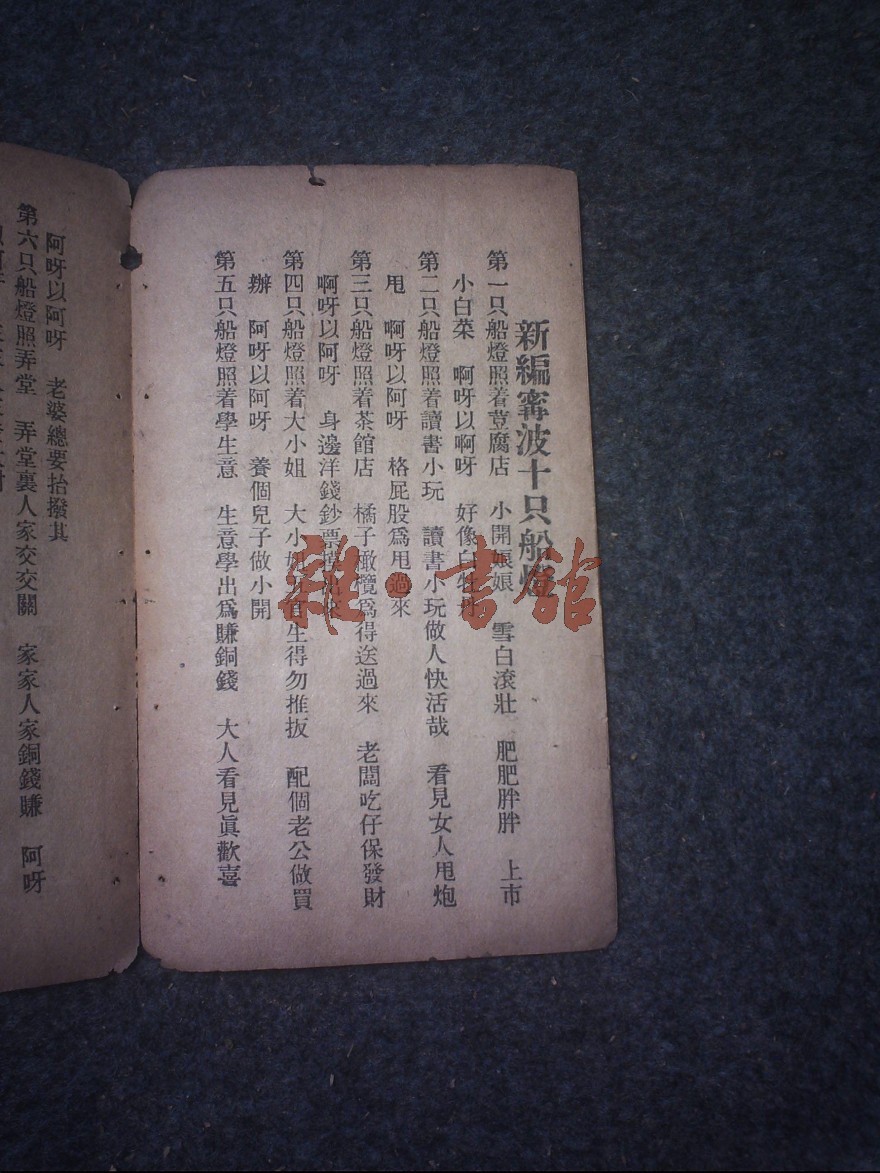 新編寗波十只船燈
第一只船燈照着荳腐店　小開娘娘　雪白滾壯　肥肥胖胖　上市
小白菜　啊呀以啊呀　好像白牡丹
第二只船燈照着讀書小玩　讀書小玩做人快活哉　看見女人甩炮
甩　啊呀以阿呀　格屁股爲甩過來
第三只船燈照着茶館店　橘子橄欖爲得送過來　老闆吃仔保發財
啊呀以阿呀　身邊洋錢鈔票　出來
第四只船燈照着大小姐　大小姐　生得勿推扳　配個老公做買
辦　阿呀以阿呀　養個兒子做小開
第五只船燈照着學生意　生意學出爲賺銅錢　大人看見眞歡喜
阿呀以阿呀　老婆總要抬撥其
第六只船燈照弄堂　弄堂裏人家交交關　家家人家銅錢賺　阿呀
雜·書舘